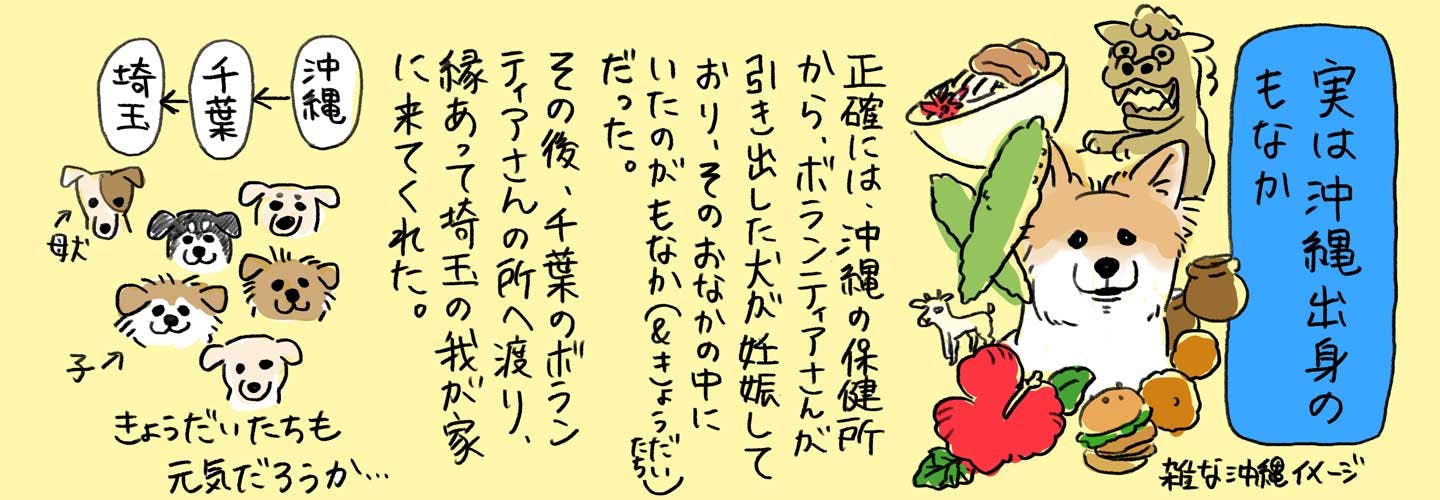 実は沖縄出身の
もなか
雑な沖縄イメージ
正確には、沖縄の保健所
から、ボランティアさんが
引き出した犬が妊娠して
おり、そのおなかの中に
いたのがもなか(&きょうだい
たち)
だった。
その後、千葉のボラン
ティアさんの所へ渡り、
縁あって埼玉の我が家
に来てくれた。
沖縄
千葉
埼玉
母犬
子
きょうだいたちも
元気だろうか…